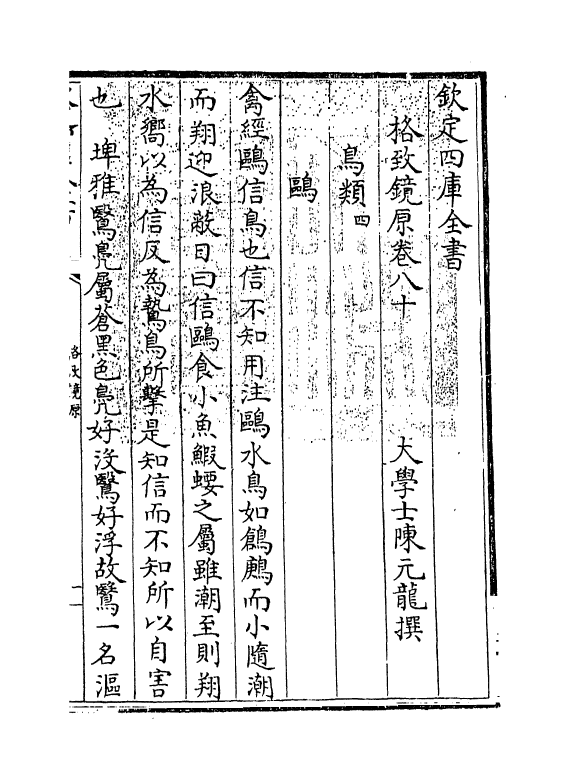 欽定四庫全書
格致鏡原卷八十
大學士陳元龍撰
鳥類四
鷗
禽經鷗信鳥也信不知用注鷗水鳥如鶬鶊而小隨潮
而翔迎浪蔽日曰信鷗食小魚鰕蝼之屬雖潮至則翔
水嚮以為信反為鷙鳥所擊是知信而不知所以自害
也 埤雅鷖鳧屬蒼黑色鳧好沒鷖好浮故鷖一名漚
格致鏡原
一